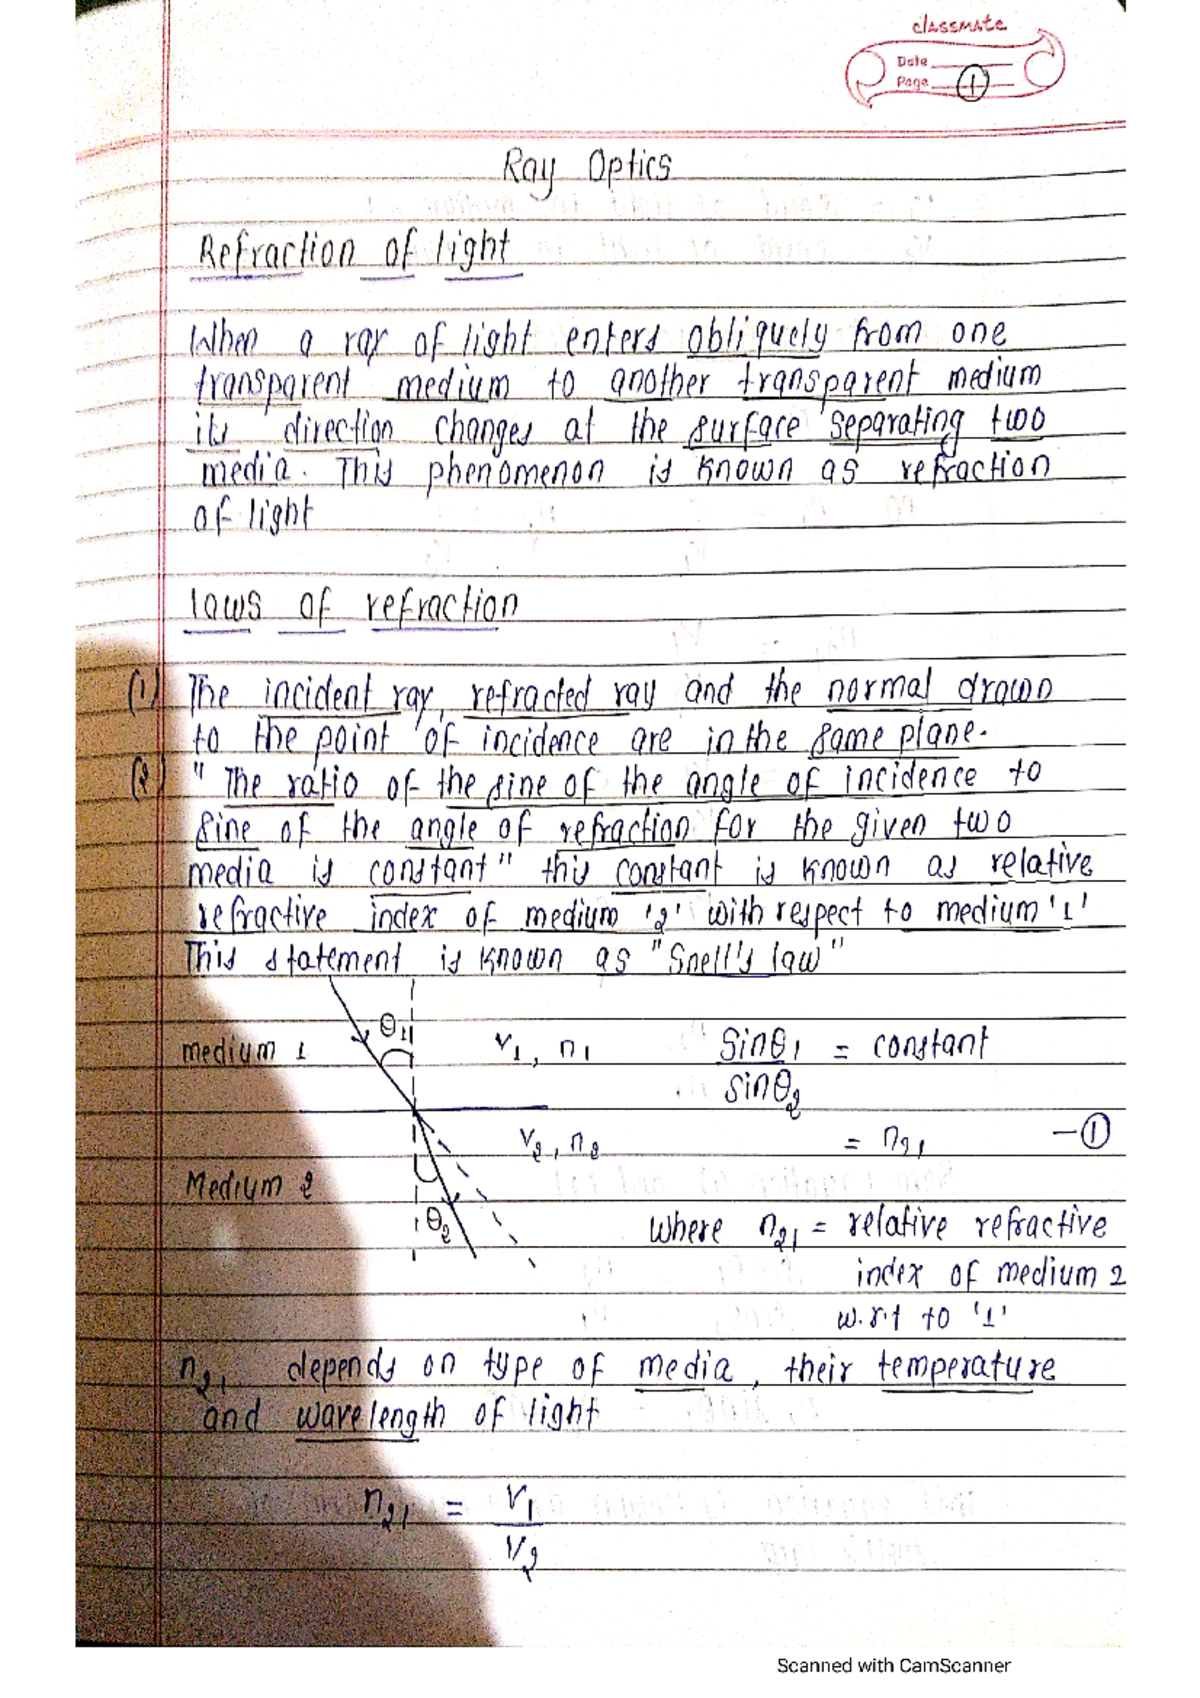 classmate
Date
Page 1
Ray Optics
Refraction of light
When a ray of light enters obliquely from one
transparent medium to another transparent medium
its direction changes at the surface separating two
media. This phenomenon is known as refraction
of light
laws of refraction
(1) The incident ray, refracted ray and the normal drawn
to the point of incidence are in the same plane.
(2) "The ratio of the sine of the angle of incidence to
sine of the angle of refraction for the given two
media is constant" this constant is known as relative
refractive index of medium '2' with respect to medium '1'
This statement is known as "Snell's law"
θ1
medium 1 v1, n1 Sinθ1 = constant
sinθ2
v2, n2 = n21 —①
Medium 2
θ2 where n21 = relative refractive
index of medium 2
w.r.t to '1'
n21 depends on type of media, their temperature
and wavelength of light
n21 = v1
v2
Scanned with CamScanner